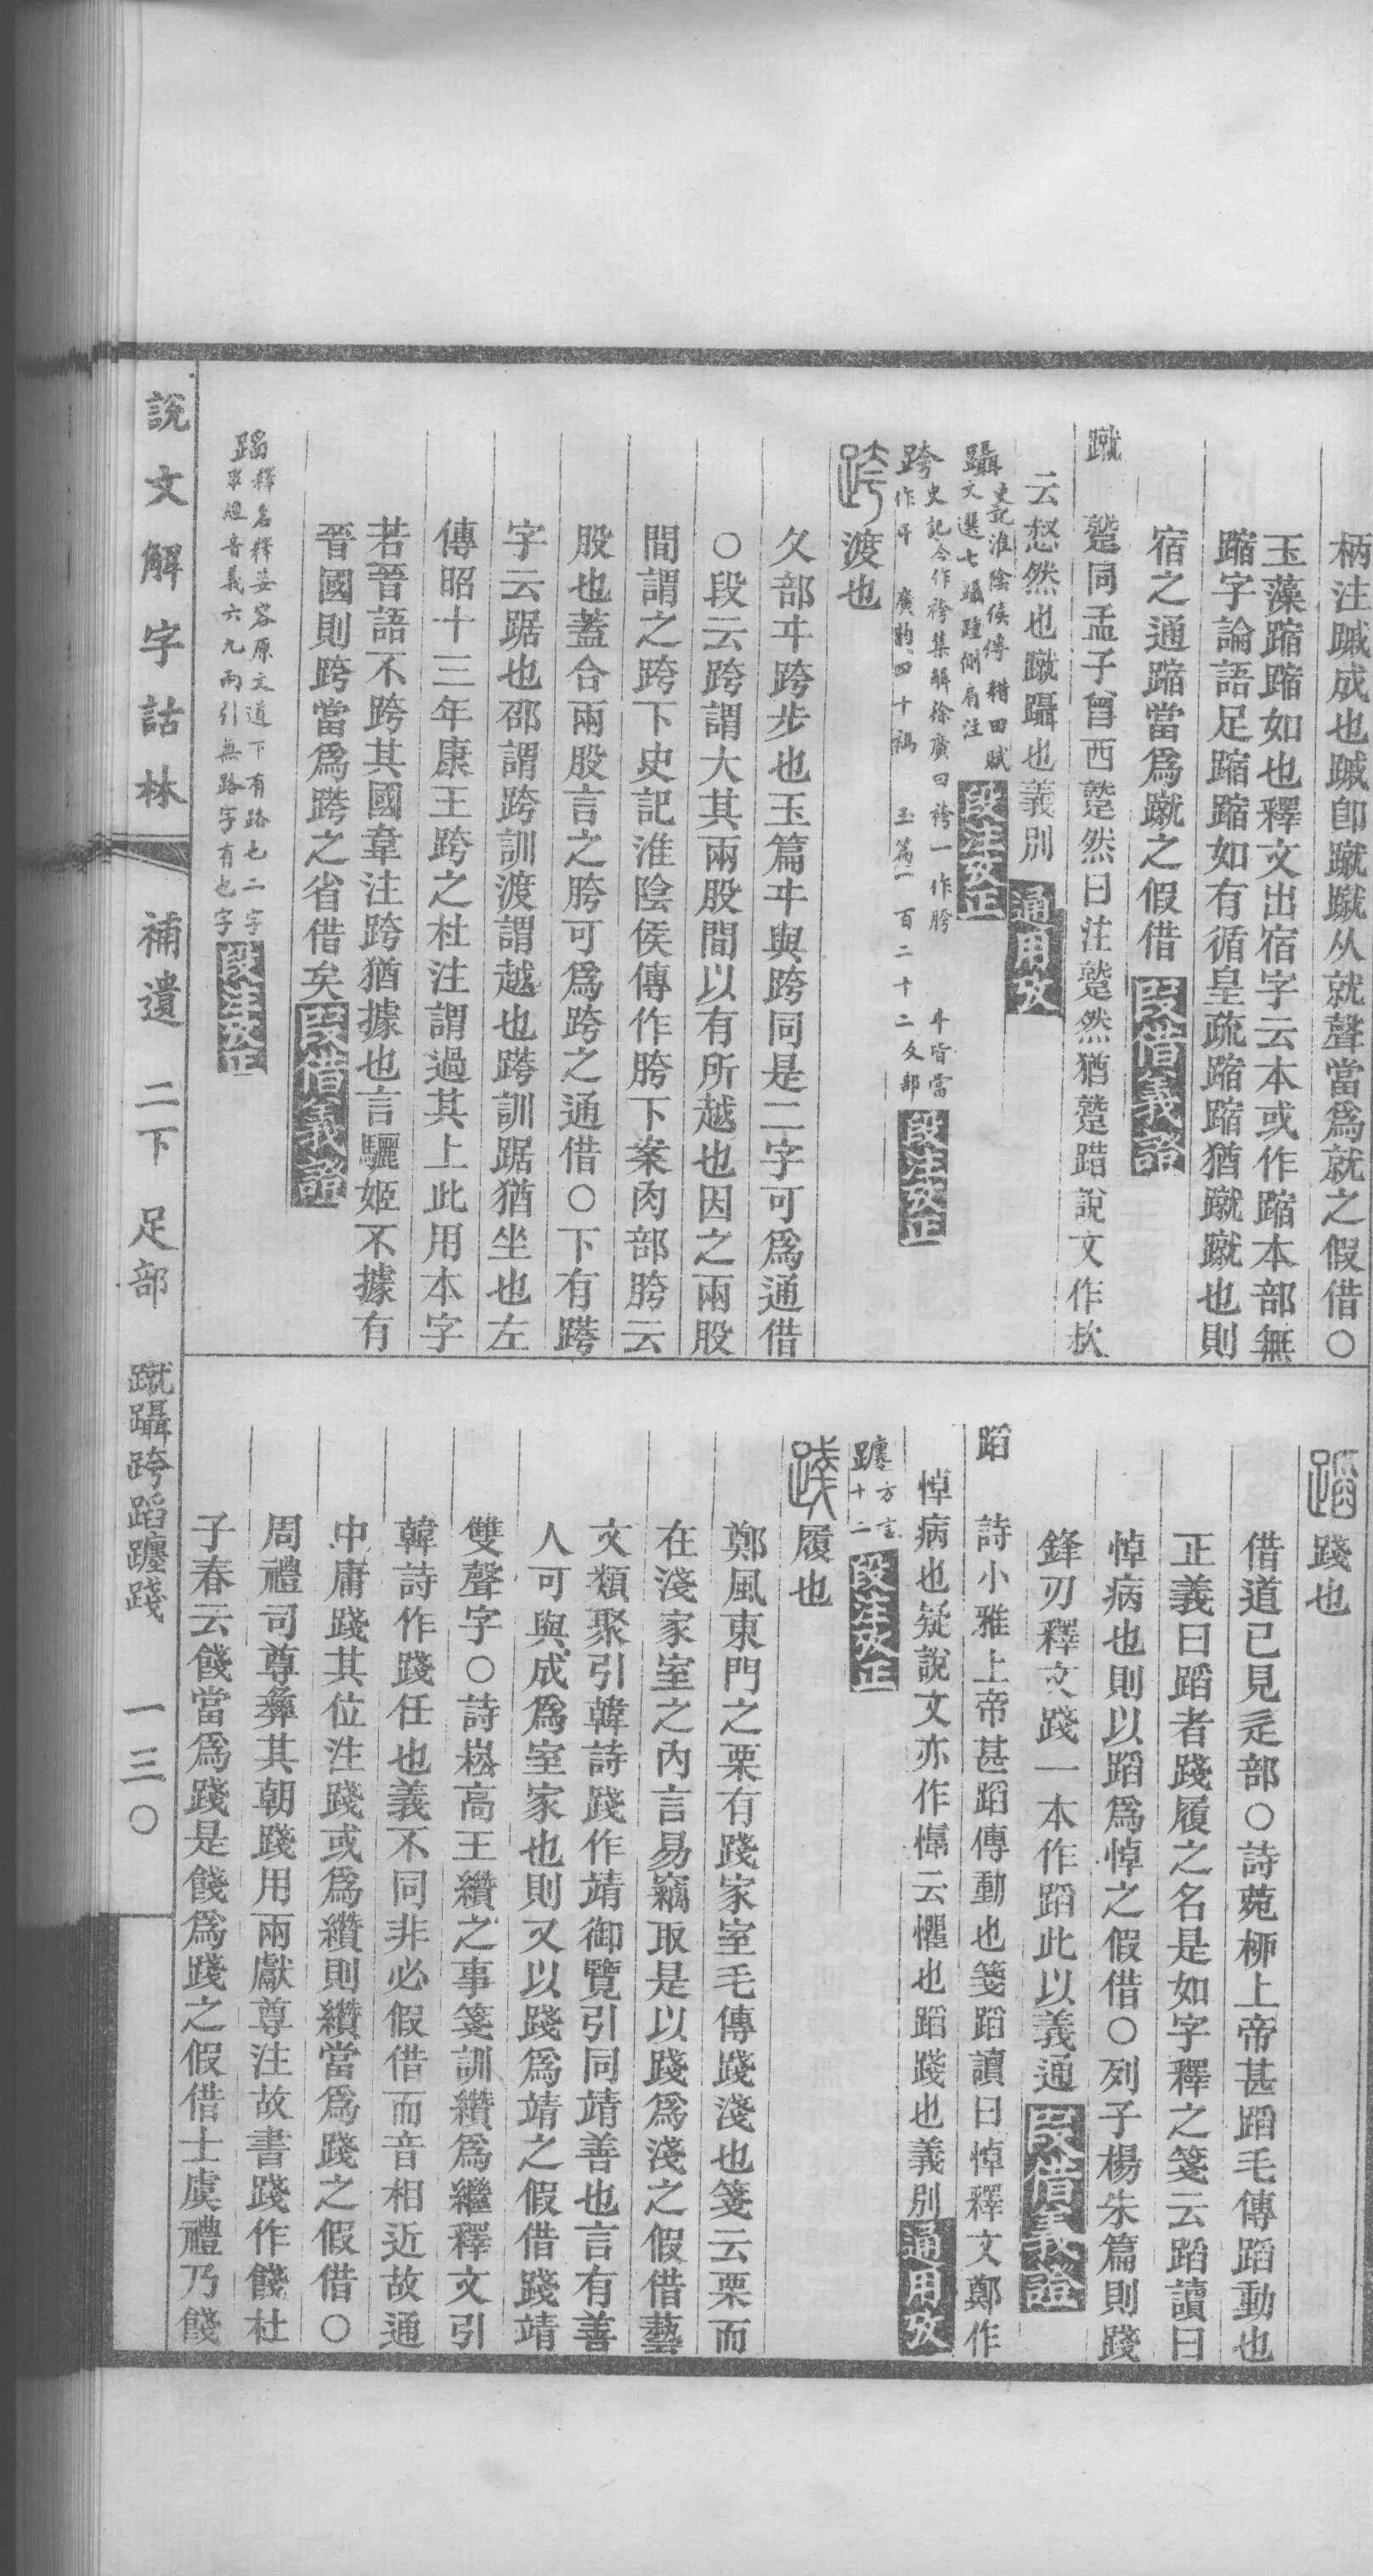 柄注䠞成也䠞卽蹴蹴从就聲當爲就之假借○
玉藻蹜蹜如也釋文出宿字云本或作蹜本部無
蹜字論語足蹜蹜如有循皇疏蹜蹜猶蹴蹴也則
宿之通蹜當爲蹴之假借 叚借義證
蹴 蹵同孟子曾西蹵然曰注蹵然猶蹵踖說文作欪
云怒然也蹴躡也義別 通用攷
躡 史記淮陰侯傳 耤田賦
文選七躡踵側肩注 段注攷正
跨 史記今作袴集解徐廣曰袴一作胯 㐄皆當
作㐄 廣韵四十禡 玉篇一百二十二夊部 段注攷正
跨 渡也
夂部㐄跨步也玉篇㐄與跨同是二字可爲通借
○段云跨謂大其兩股間以有所越也因之兩股
間謂之跨下史記淮陰侯傳作胯下案肉部胯云
股也蓋合兩股言之胯可爲跨之通借○下有䠸
字云踞也邵謂跨訓渡謂越也䠸訓踞猶坐也左
傳昭十三年康王跨之杜注謂過其上此用本字
若晉語不跨其國韋注跨猶據也言驪姬不據有
晉國則跨當爲䠸之省借矣 叚借義證
蹋 釋名釋姿容原文道下有路也二字
眾經音義六九兩引無路字有也字 段注攷正
蹈 踐也
借道已見辵部○詩菀柳上帝甚蹈毛傳蹈動也
正義曰蹈者踐履之名是如字釋之箋云蹈讀曰
悼病也則以蹈爲悼之假借○列子楊朱篇則踐
鋒刃釋文踐一本作蹈此以義通 叚借義證
蹈 詩小雅上帝甚蹈傳動也箋蹈讀曰悼釋文鄭作
悼病也疑說文亦作悼云懼也蹈踐也義別 通用攷
躔 方言
十二 段注攷正
踐 履也
鄭風東門之栗有踐家室毛傳踐淺也箋云栗而
在淺家室之內言易竊取是以踐爲淺之假借藝
文類聚引韓詩踐作靖御覽引同靖善也言有善
人可與成爲室家也則又以踐爲靖之假借踐靖
雙聲字○詩崧高王纘之事箋訓纘爲繼釋文引
韓詩作踐任也義不同非必假借而音相近故通
中庸踐其位注踐或爲纘則纘當爲踐之假借○
周禮司尊彝其朝踐用兩獻尊注故書踐作餞杜
子春云餞當爲踐是餞爲踐之假借士虞禮乃餞
說文解字詁林 補遺 二下 足部 蹴躡跨蹈躔踐 一三○